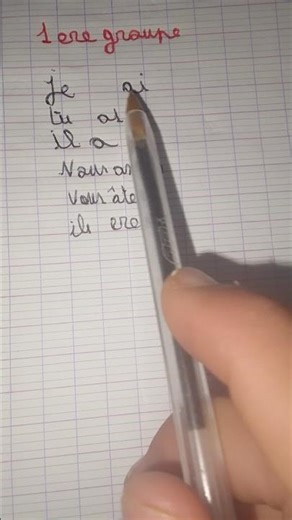 1 ere groupe
je ai
tu as
il a
Nous
Vous âte
ils ere